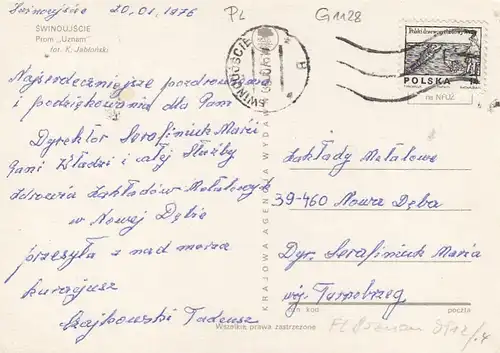 Świnoujście 20.01.1976
PL
G1128
ŚWINOUJŚCIE
Prom „Uznam"
fot. K. Jabłoński
ŚWINOUJŚCIE
POLSKA
na NFOZ
Najserdeczniejsze pozdrowienia
i podziękowania dla Pani
Dyrektor Serafiniuk Marii
Pani Władzi i całej Służby
Zdrowia Zakładów Metalowych
w Nowej Dębie
przesyła z nad morza
kuracjusz
Czajkowski Tadeusz
KRAJOWA AGENCJA WYDAW
Zakłady Metalowe
39-460 Nowa Dęba
Dyr. Serafiniuk Maria
woj. Tarnobrzeg
kod poczta
Wszelkie prawa zastrzeżone